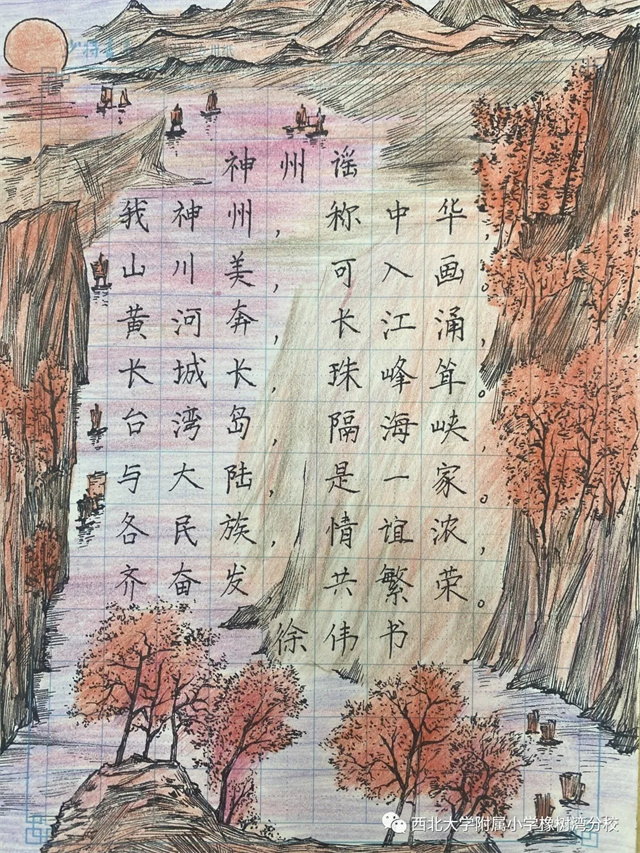 神州谣
我神州，称中华，
山川美，可入画。
黄河奔，长江涌，
长城长，珠峰耸。
台湾岛，隔海峡，
与大陆，是一家。
各民族，情谊浓，
齐奋发，共繁荣。
徐伟书
西北大学附属小学橡树湾分校